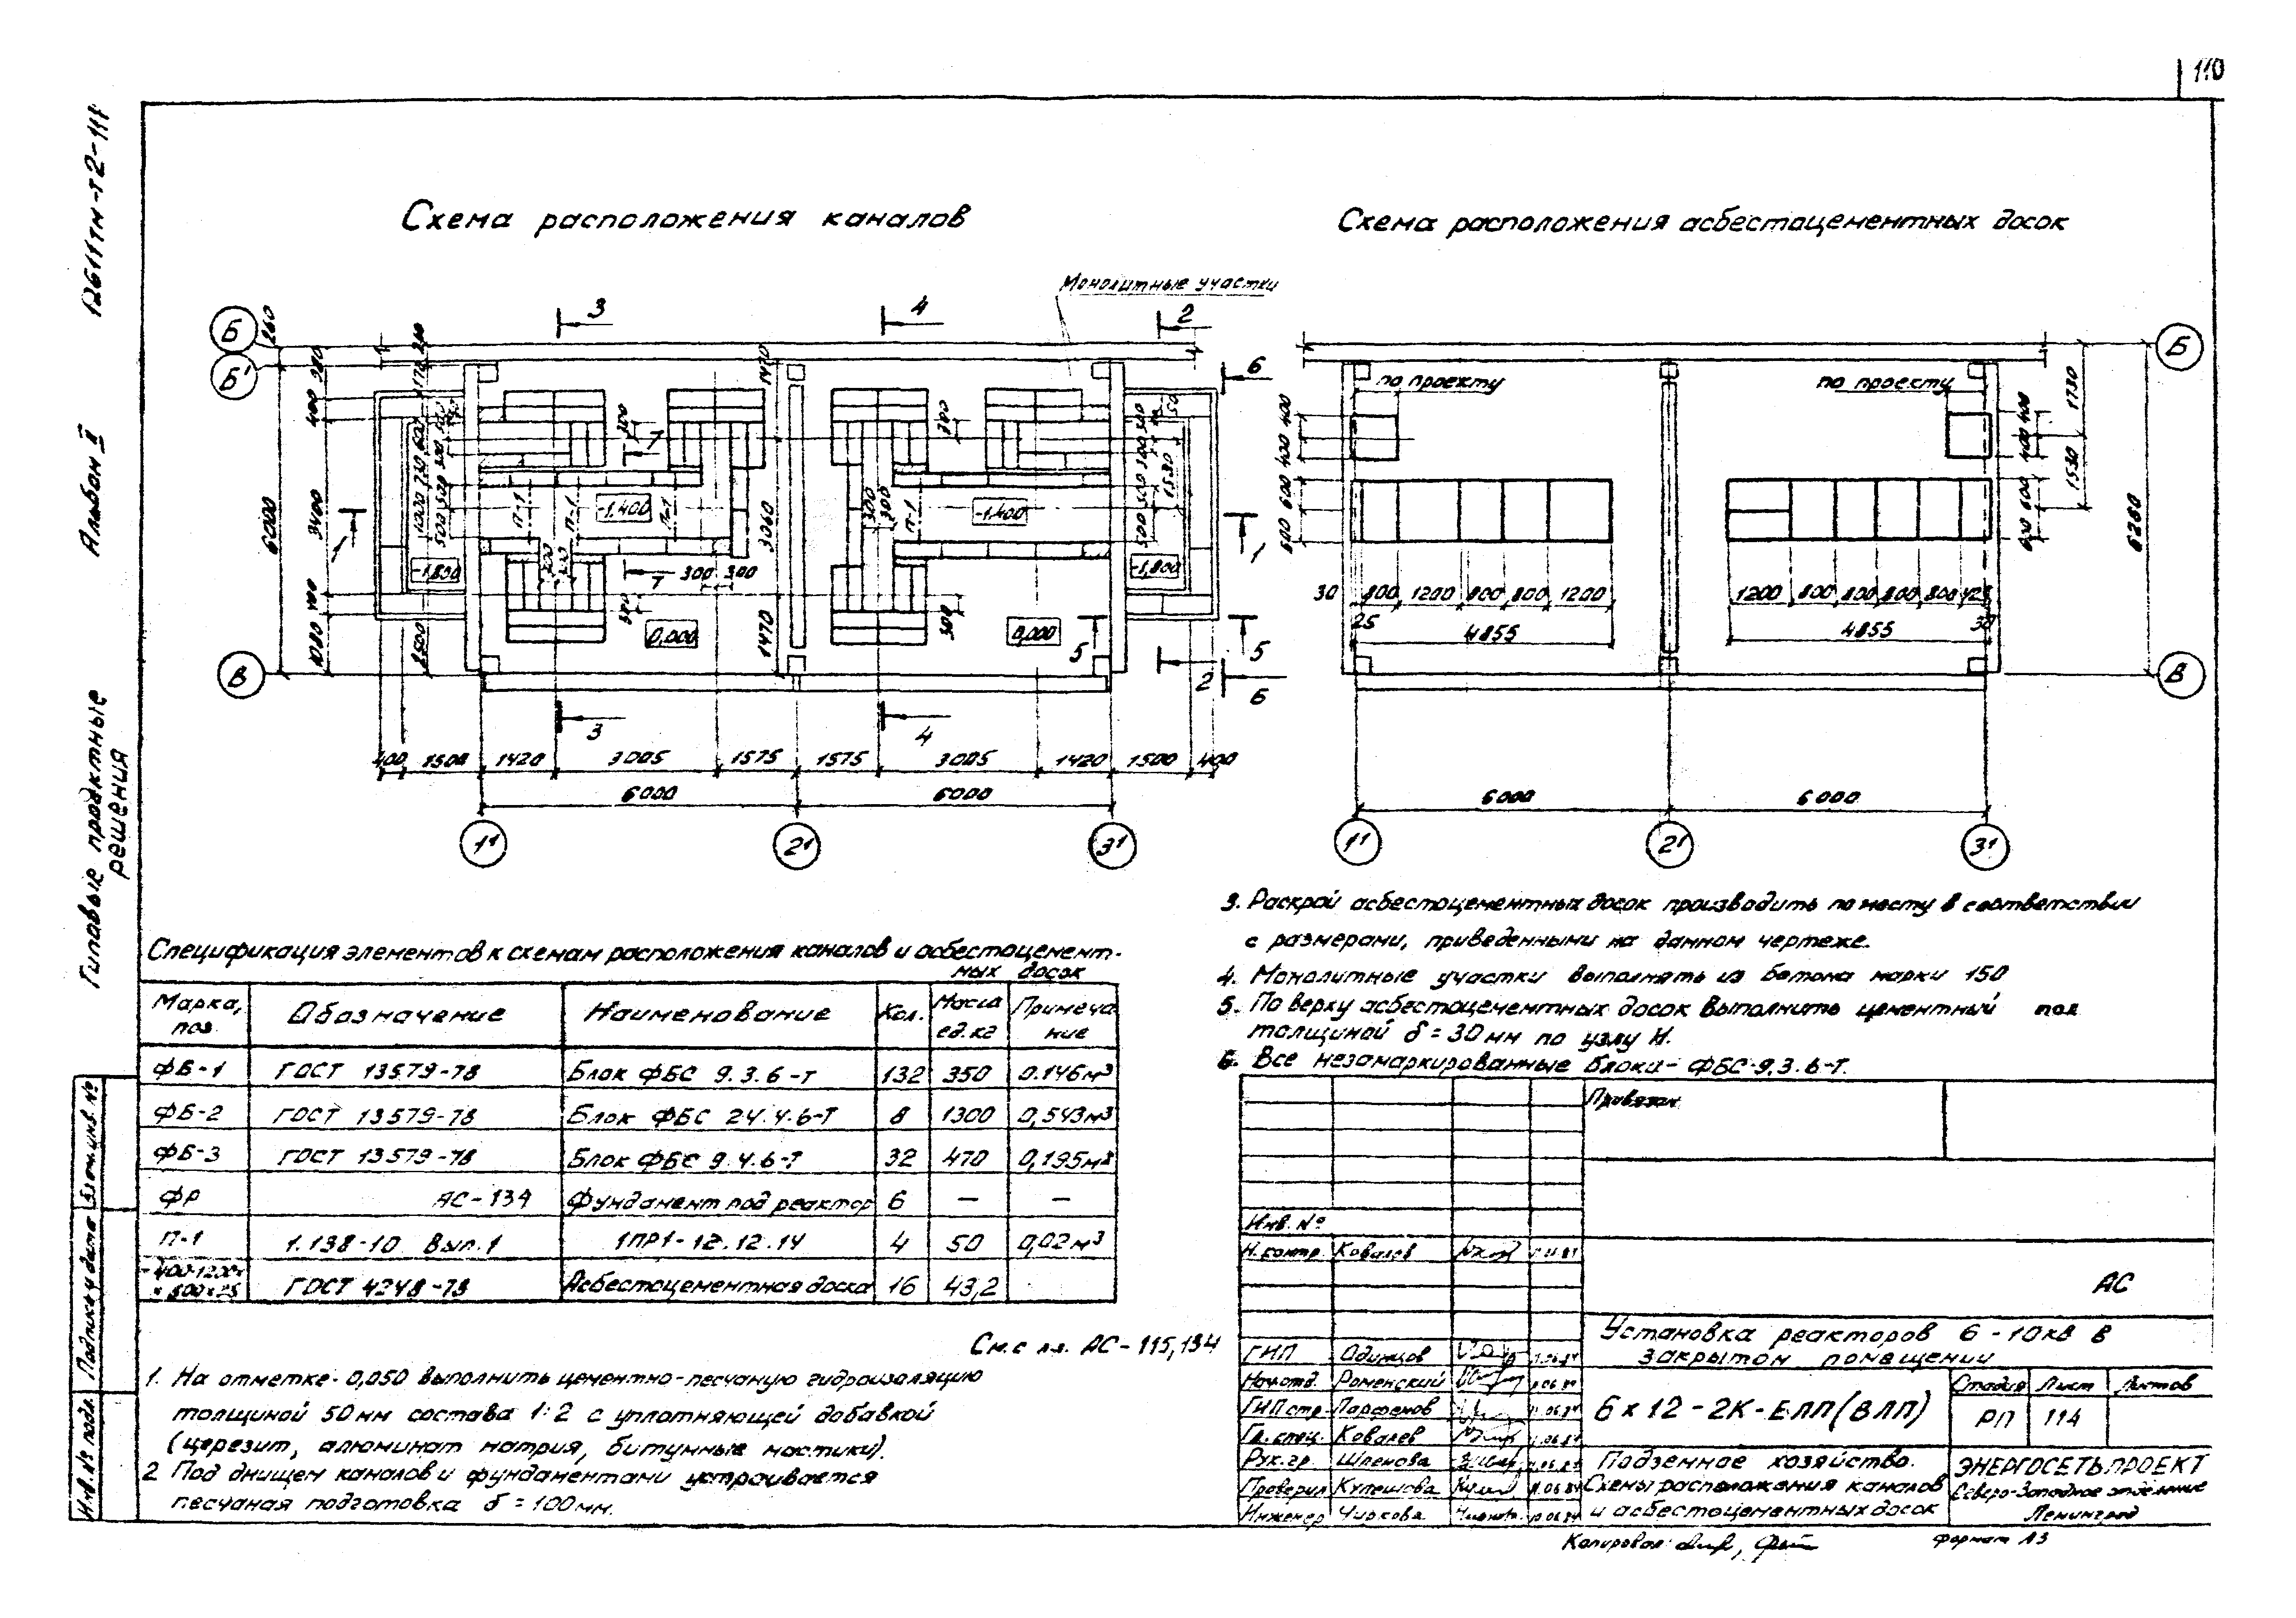 110
12611тм-т2-117
Альбом II
Типовые проектные
решения
Схема расположения каналов
Схема расположения асбестоцементных досок
Монолитные участки
3
4
2
6
Б
Б'
В
260
6000
3400
1080
2500
-1.400
-1.400
-1,800
-1,800
0,000
0,000
П-1
П-1
П-1
П-1
1470
3060
1470
300 300
1
1
5
5
2
6
3
4
400 1500 1420 3005 1575 1575 3005 1420 1500 400
6000 6000
1' 2' 3'
по проекту
по проекту
Б
В
1730
1530
6260
600 600 400 400
30 800 1200 800 800 1200
25
4855
1200 800 800 800 800 425
30
4855
6000 6000
1' 2' 3'
Спецификация элементов к схемам расположения каналов и асбестоцемент-
ных досок
Марка, поз. Обозначение Наименование Кол. Масса ед.кг Примечание
ФБ-1 ГОСТ 13579-78 Блок ФБС 9.3.6-т 132 350 0.146м³
ФБ-2 ГОСТ 13579-78 Блок ФБС 24.4.6-Т 8 1300 0,543м³
ФБ-3 ГОСТ 13579-78 Блок ФБС 9.4.6-Т 32 470 0,195м³
ФР АС-134 Фундамент под реактор 6 — —
П-1 1.138-10 Вып.1 1ПР1-12.12.14 4 50 0,02м³
ГОСТ 4248-78 Асбестоцементная доска 16 43,2
См.с лл. АС-115,134
1. На отметке-0,050 выполнить цементно-песчаную гидроизоляцию
толщиной 50мм состава 1:2 с уплотняющей добавкой
(церезит, алюминат натрия, битумные мастики).
2 Под днищем каналов и фундаментами устраивается
песчаная подготовка δ=100мм.
3. Раскрой асбестоцементных досок производить по месту в соответствии
с размерами, приведенными на данном чертеже.
4. Монолитные участки выполнять из бетона марки 150
5. По верху асбестоцементных досок выполнить цементный пол
толщиной δ=30мм по узлу И.
6. Все незамаркированные блоки-ФБС-9.3.6-Т.
Привязан
Инв. №
Н.контр. Ковалев
АС
Установка реакторов 6-10кв в
закрытом помещении
ГИП Одинцов
Нач.отд. Роменский
ГИП стр. Парфенов
Гл. спец. Ковалев
Рук.гр. Шленова
Проверил Кулешова
Инженер Чиркова
6х12-2К-ЕЛП(ВЛП)
Стадия Лист Листов
РП 114
Подземное хозяйство.
Схемы расположения каналов
и асбестоцементных досок
ЭНЕРГОСЕТЬПРОЕКТ
Северо-Западное отделение
Ленинград
Копировал:
Формат А3
Инв. № подл. Подпись и дата Взам.инв. №